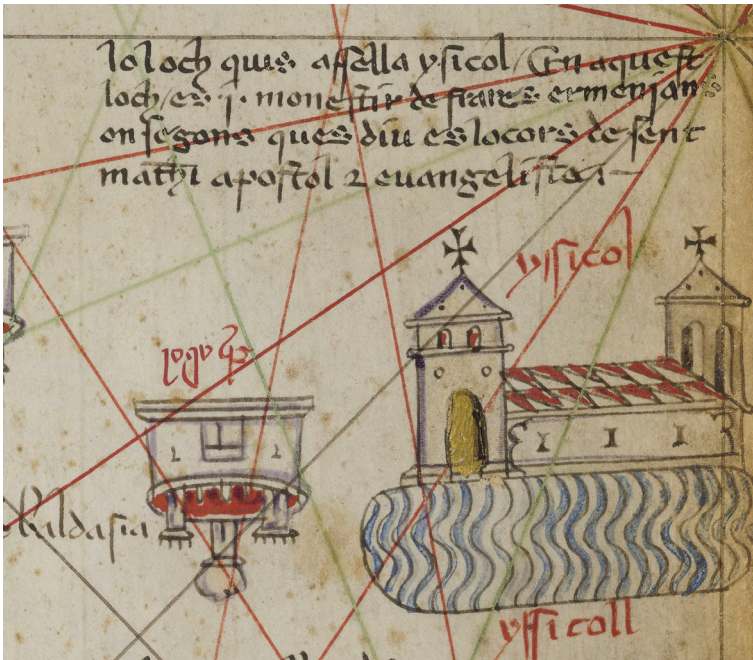 lo loch quis apella ysicol / En aquest
loch / es .j. monestir de frares ermenians
on segons ques diu es lo cors de sent
mathi apostol 2 euangelista
yssicol
baldasia
yssicoll